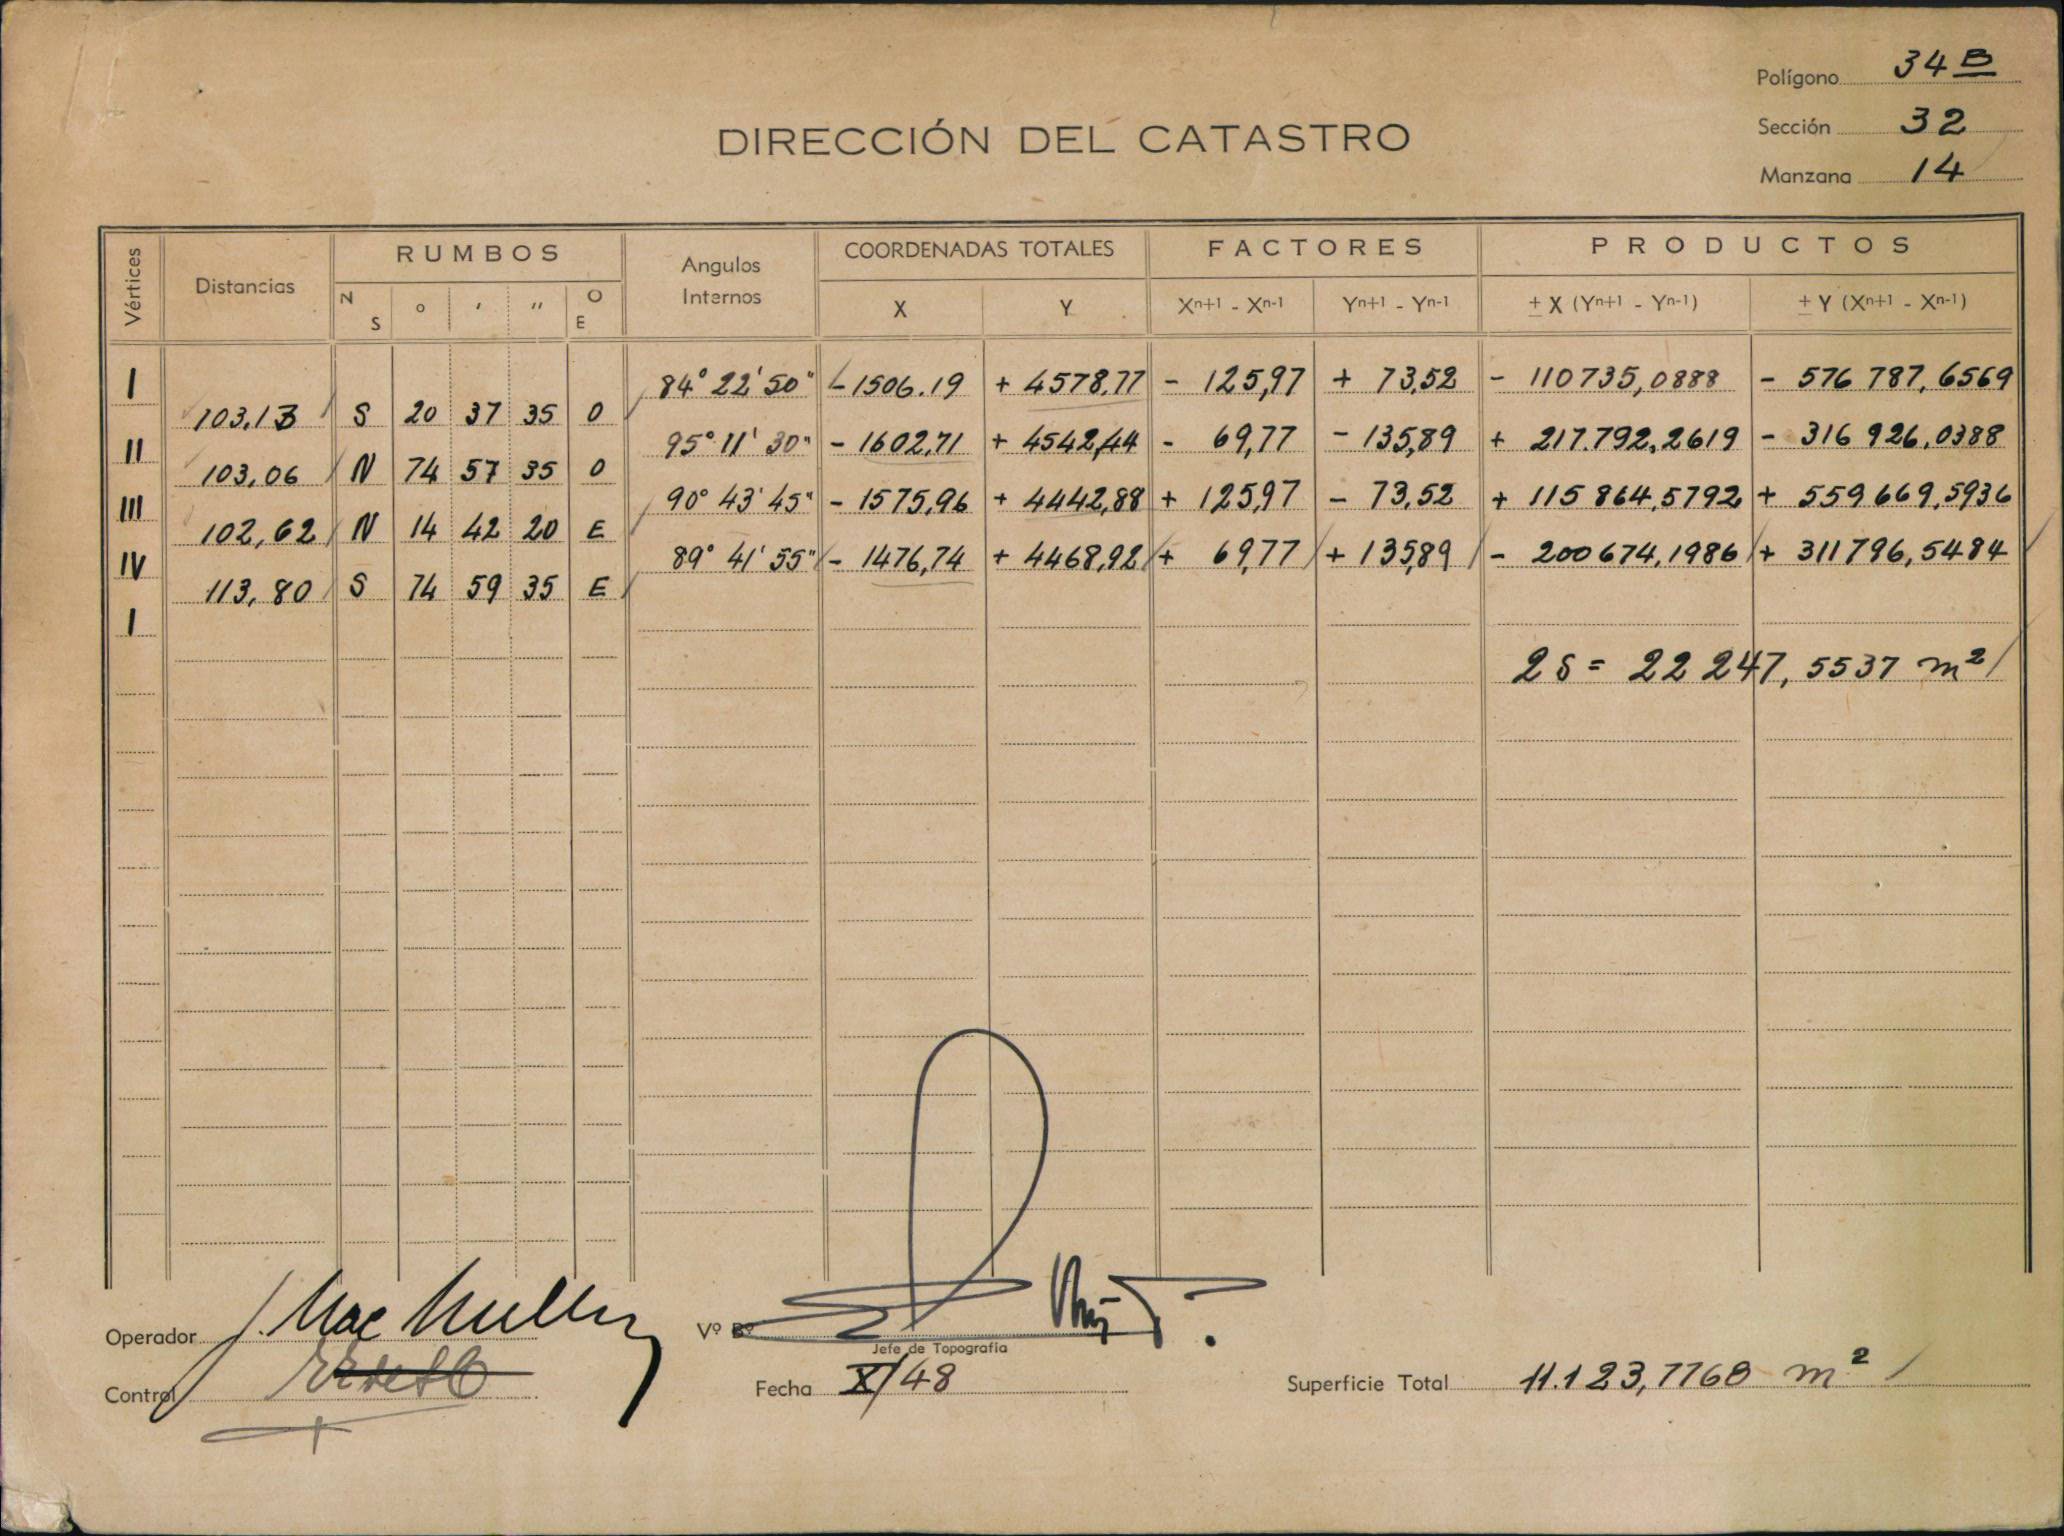 Polígono 34 B
Sección 32
Manzana 14
DIRECCIÓN DEL CATASTRO
Vértices Distancias RUMBOS Angulos Internos COORDENADAS TOTALES FACTORES PRODUCTOS
N S ° ' '' O E X Y Xn+1 - Xn-1 Yn+1 - Yn-1 ± X (Yn+1 - Yn-1) ± Y (Xn+1 - Xn-1)
I 84° 22' 50" - 1506.19 + 4578,77 - 125,97 + 73,52 - 110735,0888 - 576 787,6569
103,13 S 20 37 35 O
II 95° 11' 30" - 1602,71 + 4542,44 - 69,77 - 135,89 + 217.792,2619 - 316 926,0388
103,06 N 74 57 35 O
III 90° 43' 45" - 1575,96 + 4442,88 + 125,97 - 73,52 + 115 864,5792 + 559 669,5936
102,62 N 14 42 20 E
IV 89° 41' 55" - 1476,74 + 4468,92 + 69,77 + 135,89 - 200 674,1986 + 311796,5484
113,80 S 74 59 35 E
I
2 S = 22 247,5537 m²
Operador J. Mac Mullen
Vº Bº
Jefe de Topografía
Control
Fecha X/48
Superficie Total 11.123,7768 m²